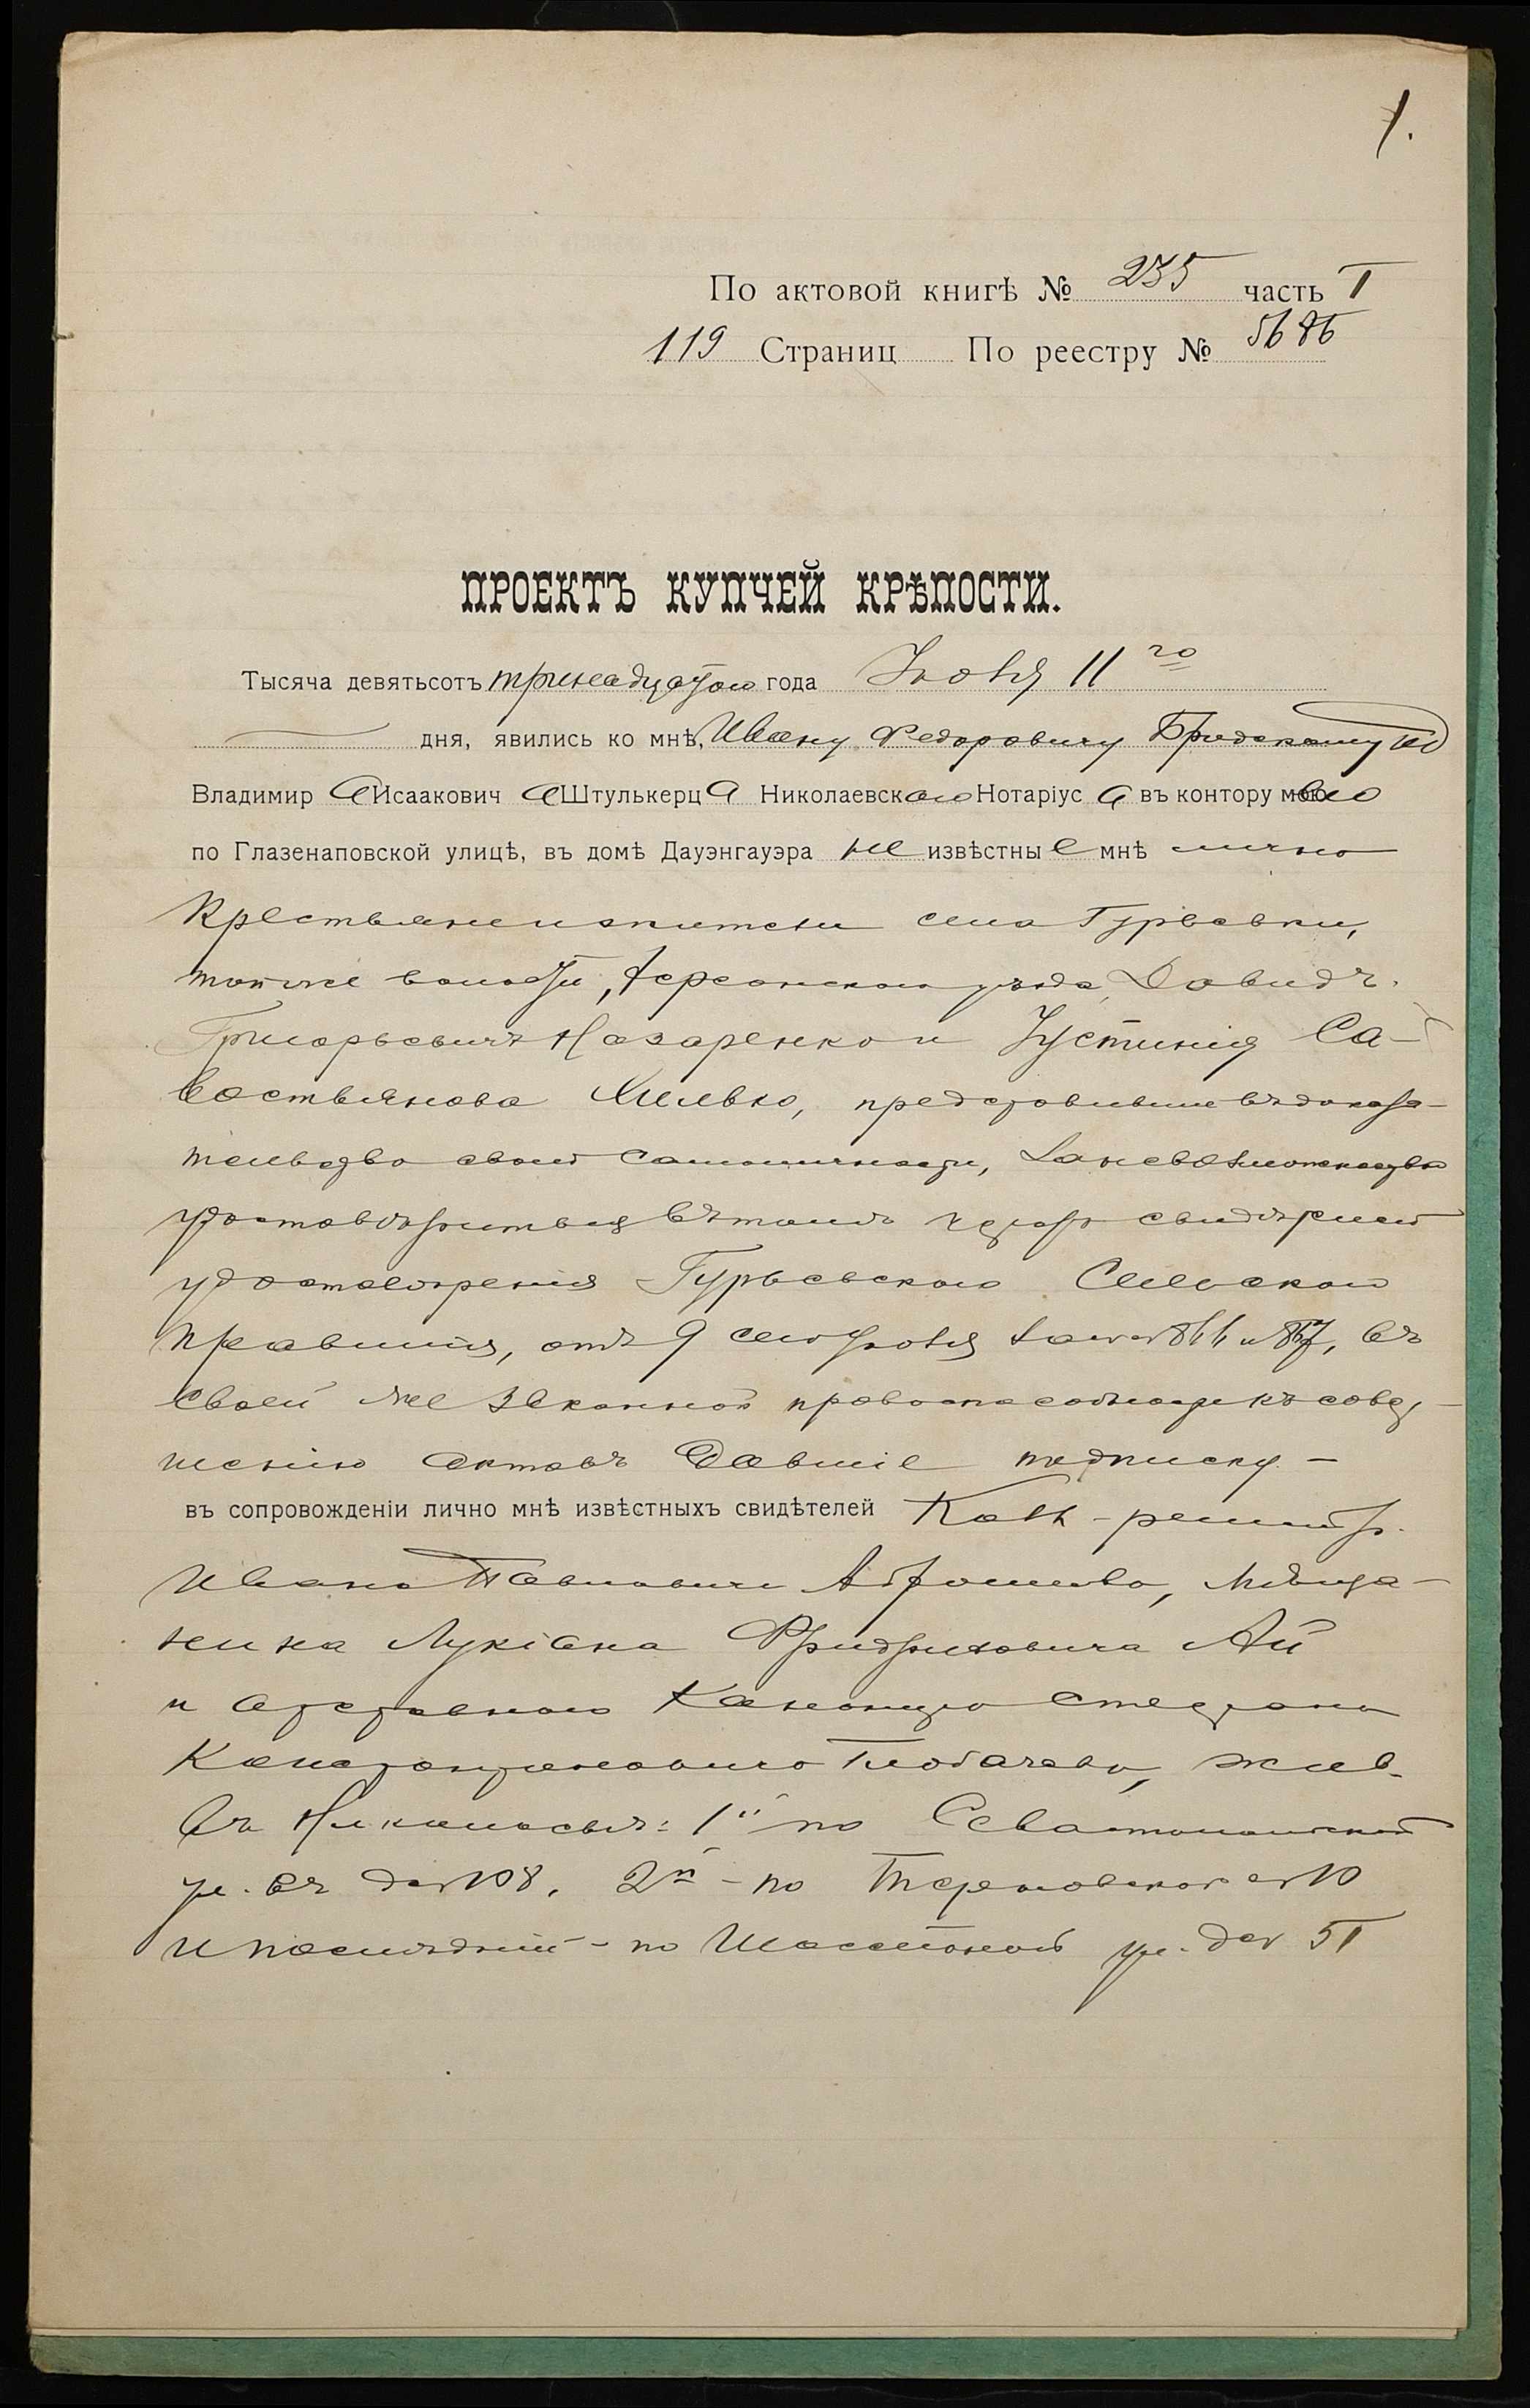 1.
По актовой книгѣ № 235 часть I
119 Страниц По реестру № 5686
ПРОЕКТЪ КУПЧЕЙ КРѢПОСТИ.
Тысяча девятьсотъ тринадцатого года Іюня 11го
дня, явились ко мнѣ, Ивану Федоровичу
Владимира Исааковича Штулькерца Николаевскаго Нотаріуса въ контору его
по Глазенаповской улицѣ, въ домѣ Дауэнгауэра не извѣстные мнѣ лично
Крестьяне и жители села Гурьевки,
той же волости, Херсонскаго уѣзда, Давидъ
Григорьевичъ Назаренко и Іустинія Са-
востьянова Хилько, представившие въ доказа-
тельство своей самоличности, за невозможностью
удостовѣриться въ томъ чрезъ свидѣтелей
удостовѣренія Гурьевскаго Сельскаго
Правленія, отъ 9 сего Іюня за №№ 866 и 867, въ
своей же законной правоспособности къ совер-
шенію актовъ давшіе подписку –
въ сопровожденіи лично мнѣ извѣстныхъ свидѣтелей
Ивана Павловича Мѣща-
нина Лукіана Фридриховича Ай
и отставного Степана
Константиновича жив.
въ Николаевѣ: 1й по Севастопольской
ул. въ д. № 108, 2й – по Терновской № 10
и послѣдній – по ул. д. № 51